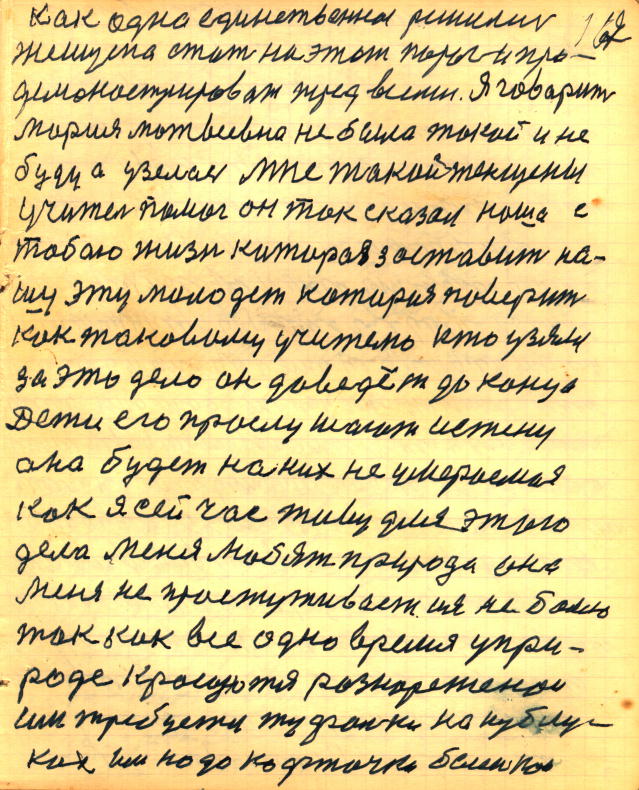 162
Как одна единственная решилис
женщена стат на этот порог и про-
демонострироват пред всеми. Я говарит
мария матвеевна не была такой и не
буду а узелас мне такой женщены
учител помог он так сказал наша с
табаю жизн каторая заставит на-
шу эту молодет каторая поверит
как таковому учителю кто узялся
за это дело он доведёт до конца
Дети его прослушают истену
она будет на них не умераемая
как я сей час живу для этого
дела меня любят природа она
меня не простуживает и я не болею
так как все одно время у при-
роде красуются разнореженои
им требуется туфли на кублу-
ках им надо кофточки белен